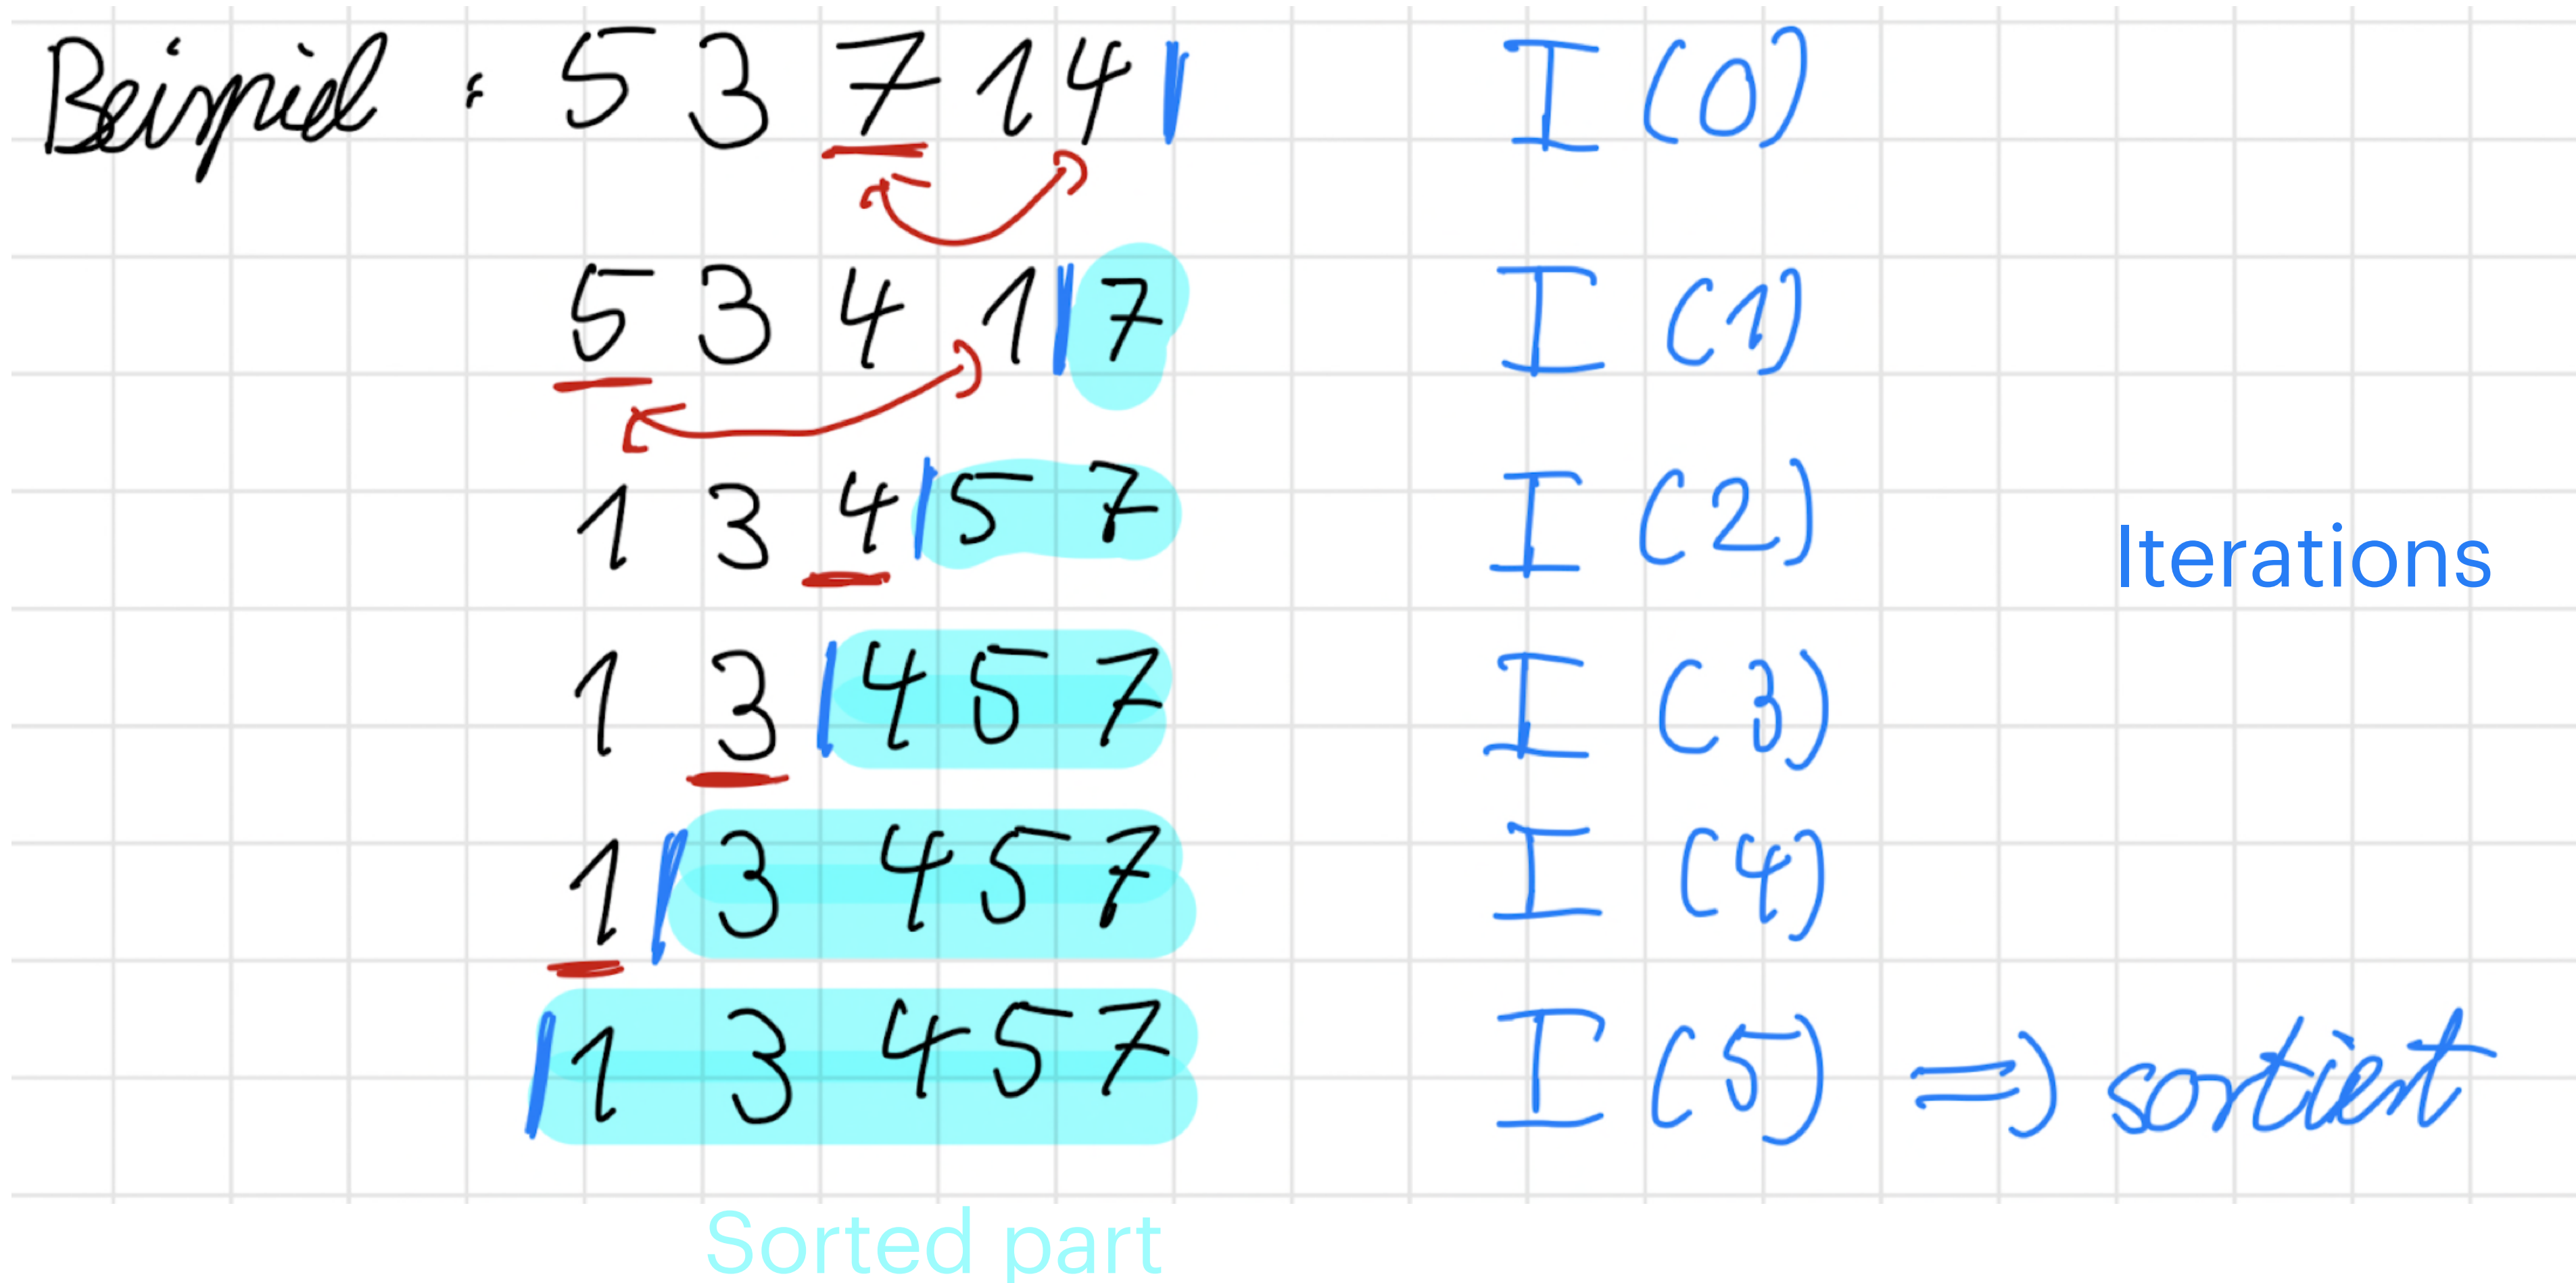 Beispiel : 5 3 7 1 4 | I (0)
5 3 4 1 | 7 I (1)
1 3 4 | 5 7 I (2)
Iterations
1 3 | 4 5 7 I (3)
1 | 3 4 5 7 I (4)
| 1 3 4 5 7 I (5) => sortiert
Sorted part